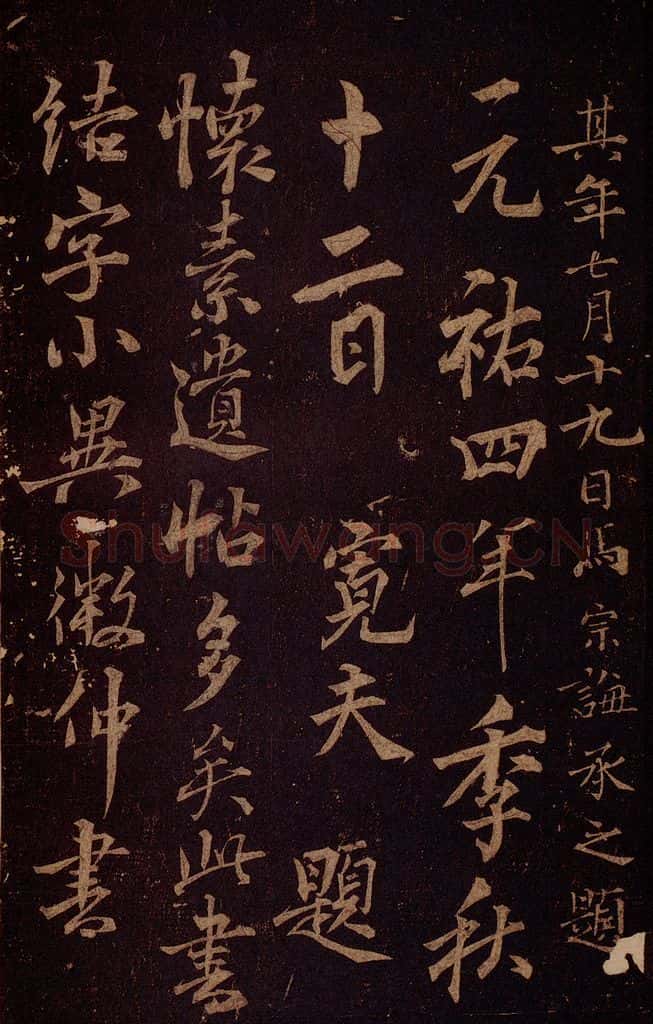 其年七月十九日馬宗誨承之題
元祐四年季秋
十二日 寛夫 題
懷素遺帖多矣此書
结字小異 微仲書
Shufawang.CN